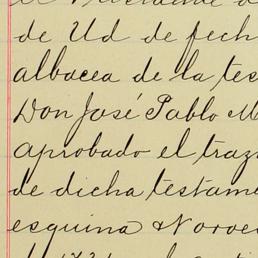 de Ud de fech
albacea de la tes
Don José Pablo M
aprobado el traz
de dicha testame
esquina Noroe